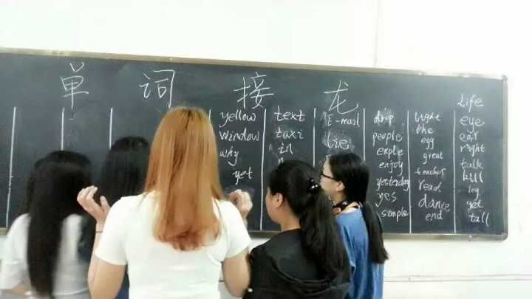 单词接龙
yellow
window
why
yet
text
taxi
in
E-mail
lie
drip
people
enjoy
yesterday
yes
simple
light
the
egg
great
teachers
read
dance
end
Life
eye
ear
right
talk
kill
leg
get
tall